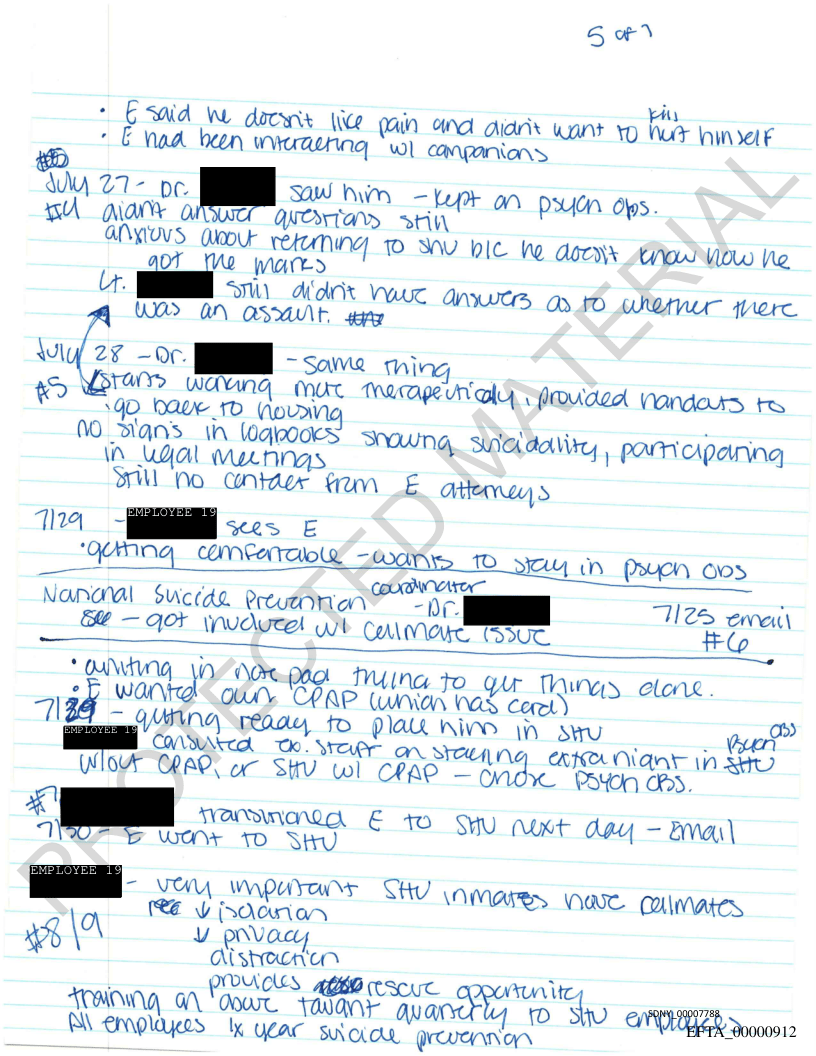 5 of 7
• E said he doesn't like pain and didn't want to kill hurt himself
• E had been interacting w/ companions
July 27 - Dr. saw him - kept on psych obs.
#4 didn't answer questions still
anxious about returning to SHU b/c he doesn't know how he
got the marks
Lt. still didn't have answers as to whether there
was an assault.
July 28 - Dr. - same thing
#5 starts working more therapeutically, provided handouts to
• go back to housing
no signs in logbooks showing suicidality, participating
in legal meetings
still no contact from E attorneys
7/29 - EMPLOYEE 19 sees E
• getting comfortable - wants to stay in psych obs
National Suicide Prevention coordinator - Dr. 7/25 email
- got involved w/ cellmate issue #6
• writing in note pad trying to get things done.
• E wanted own CPAP (which has cord)
7/29 - getting ready to place him in SHU
EMPLOYEE 19 consulted ex. staff on staying extra night in SHU Psych obs
w/out CPAP, or SHU w/ CPAP - chose psych obs.
#7 transitioned E to SHU next day - Email
7/30 - E went to SHU
EMPLOYEE 19 - very important SHU inmates have cellmates
↓ isolation
#8/9 ↓ privacy
distraction
provides rescue opportunity
training on above quarterly to SHU employees
All employees 1x year suicide prevention
SDNY_00007788
EFTA_00000912
PROTECTED MATERIAL